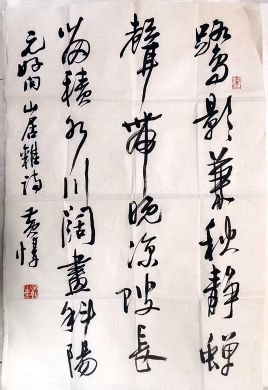 鷺影兼秋静蟬
聲帶晚凉陂長
留積水川闊盡斜陽
元好问山居雜诗 黄惇